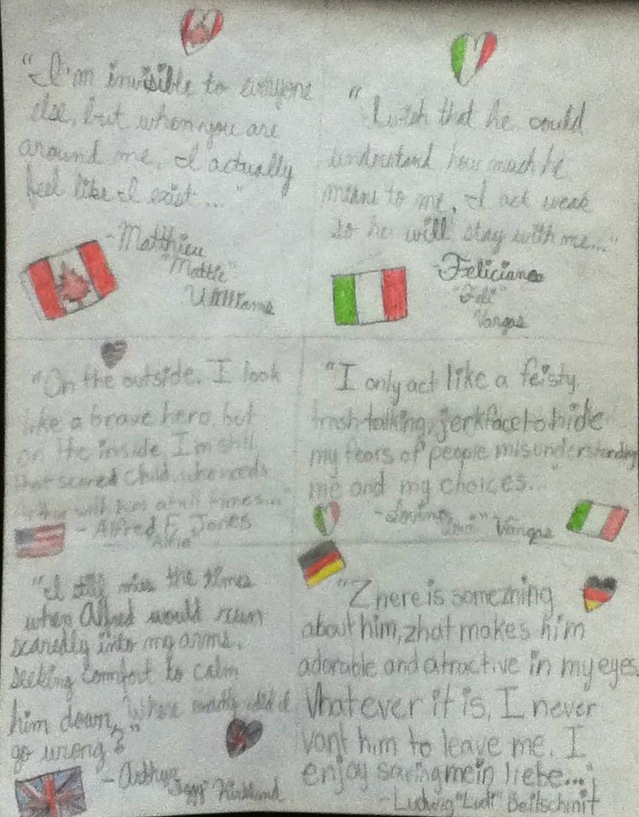 "I'm invisible to everyone
else, but when you are
around me, I actually
feel like I exist..."
-Matthieu
"Mattie"
Williams
"I wish that he could
understand how much he
means to me, I act weak
so he will stay with me..."
-Feliciano
"Feli"
Vargas
"On the outside, I look
like a brave hero, but
on the inside, I'm still
that scared child who needs
-Alfred F. Jones
"Alfie"
"I only act like a feisty
trash-talking, jerkface to hide
my fears of people misunderstanding
me and my choices..."
-Lovino
Vargas
"I still miss the times
when Alfred would run
scaredly into my arms,
seeking comfort to calm
him down, Where exactly did it
go wrong?"
-Arthur
"Iggy" Kirkland
"Zhere is somezhing
about him, zhat makes him
adorable and atractive in my eyes.
Vhatever it is, I never
vant him to leave me. I
enjoy saving mein liebe..."
-Ludwig "Ludi" Beilschmit